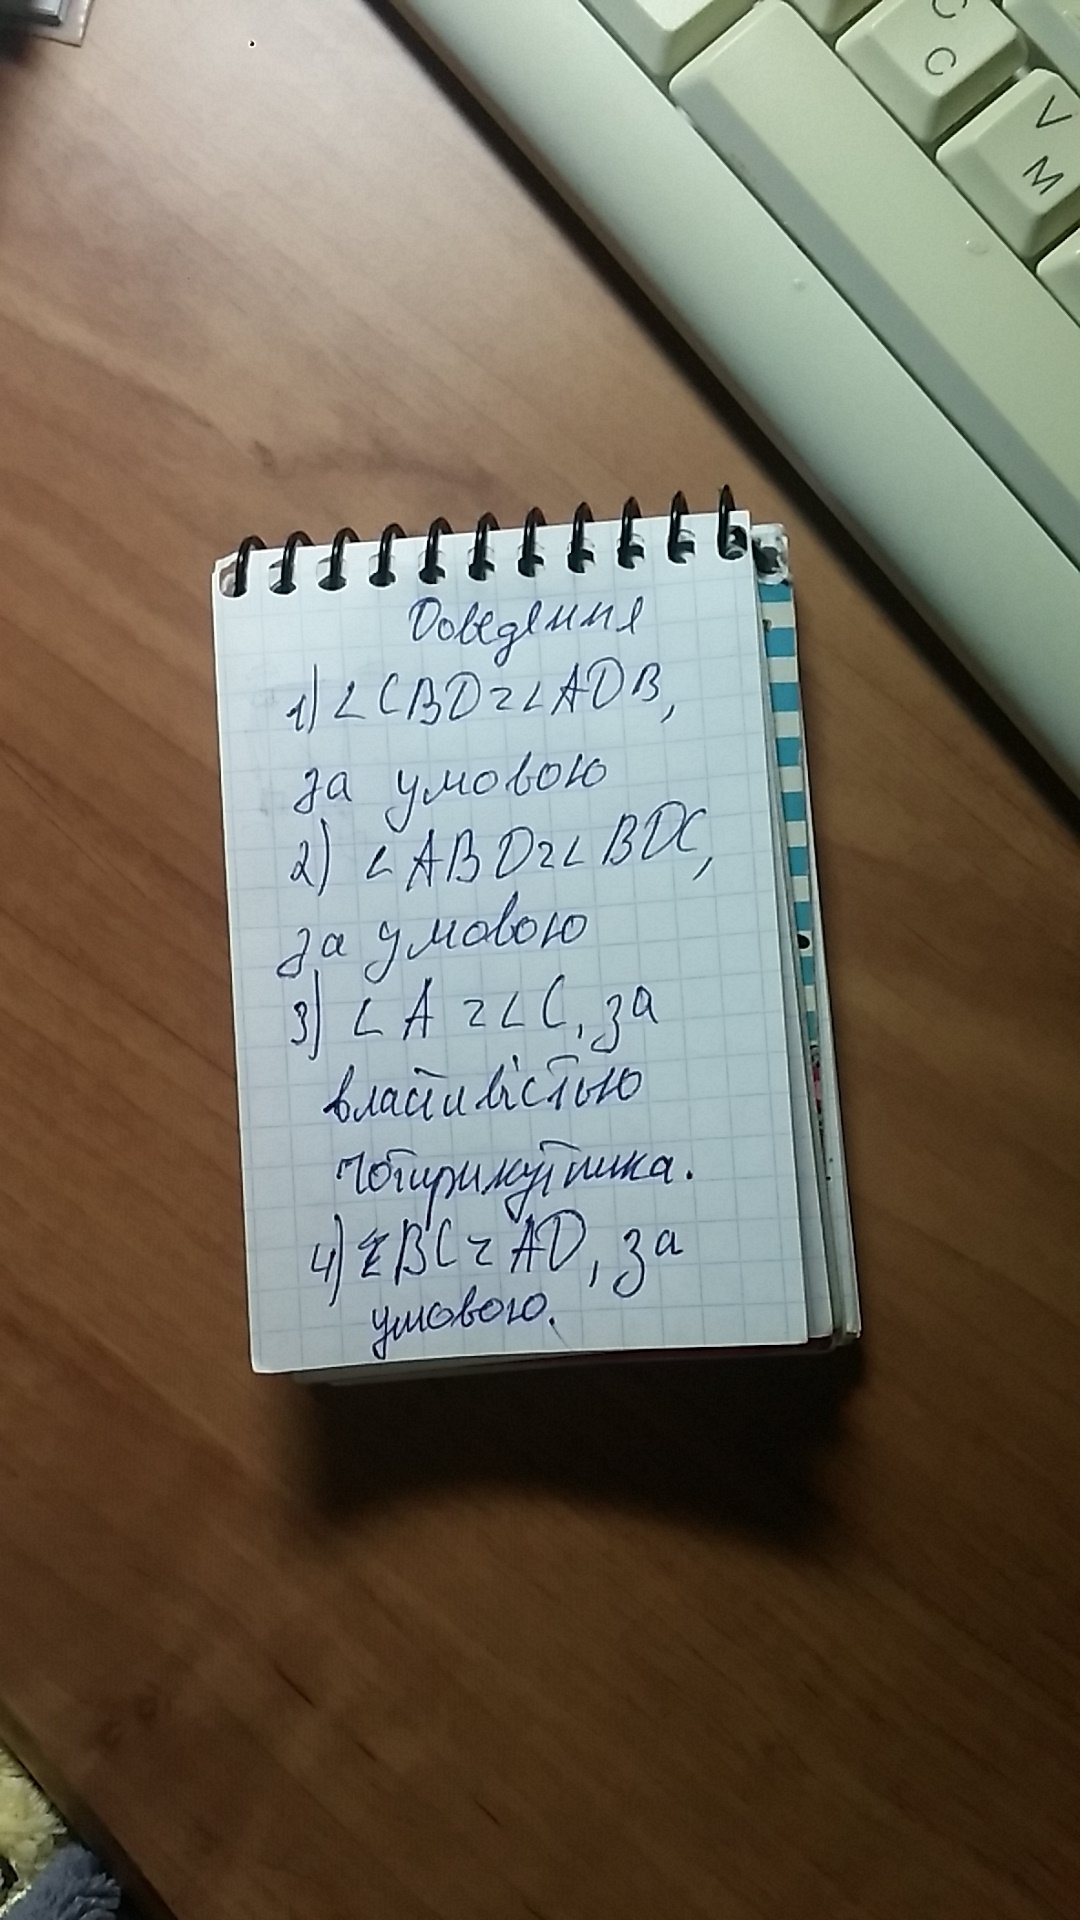 C
C
V
M
Доведення
1) ∠CBD=∠ADB,
за умовою
2) ∠ABD=∠BDC,
за умовою
3) ∠A=∠C, за
властивістю
чотирикутника.
4) BC=AD, за
умовою.